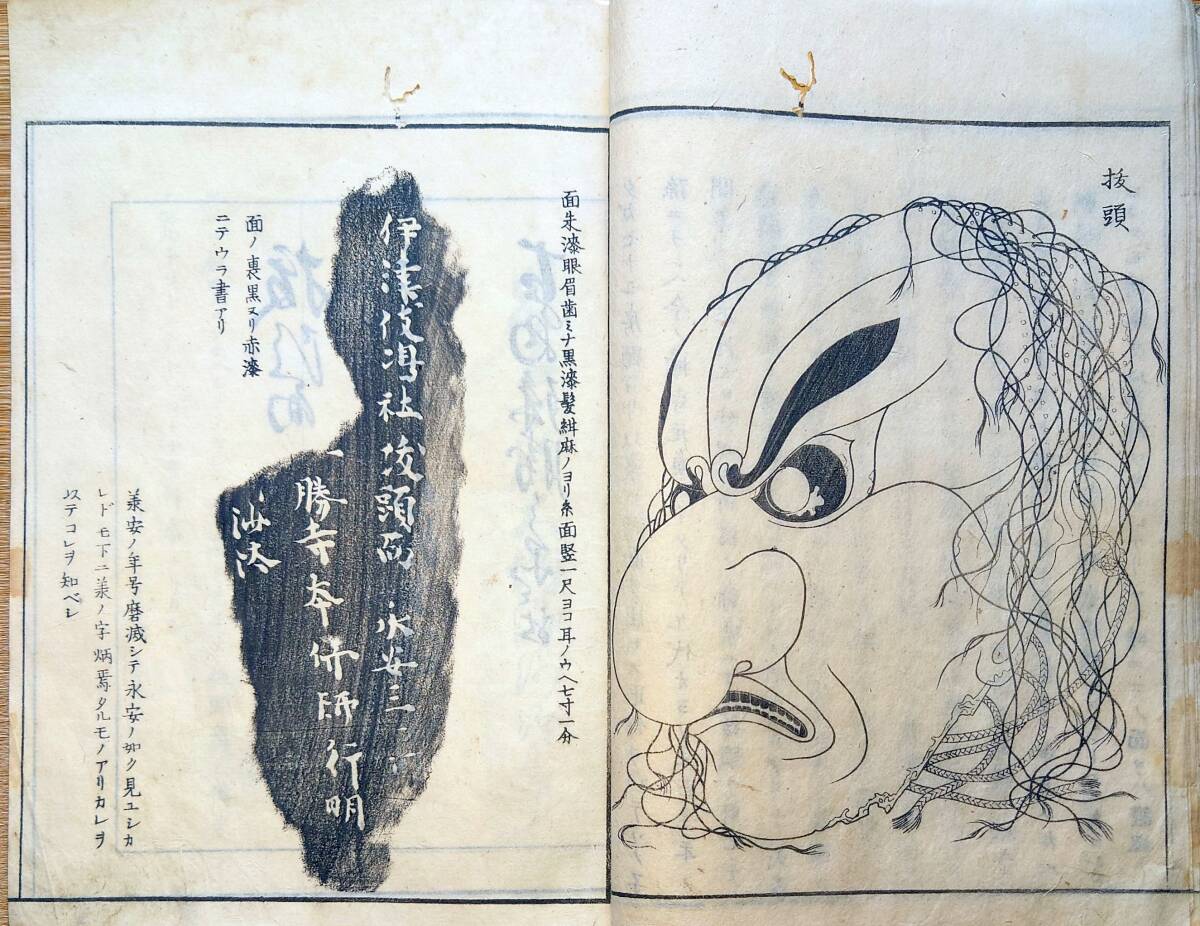 抜頭
面朱漆眼眉歯ミナ黒漆髪紺麻ノヨリ糸面竪一尺ヨコ耳ノウヘ七寸一分
伊津伎嶋社抜頭面 永安三
一勝寺本仏師 行明
沙汰
面ノ裏黒ヌリ赤漆
ニテウラ書アリ
美安ノ年号磨滅シテ永安ノ如ク見ユシカ
レドモ下ニ美ノ字炳焉タルモノアリカレヲ
以テコレヲ知ベシ